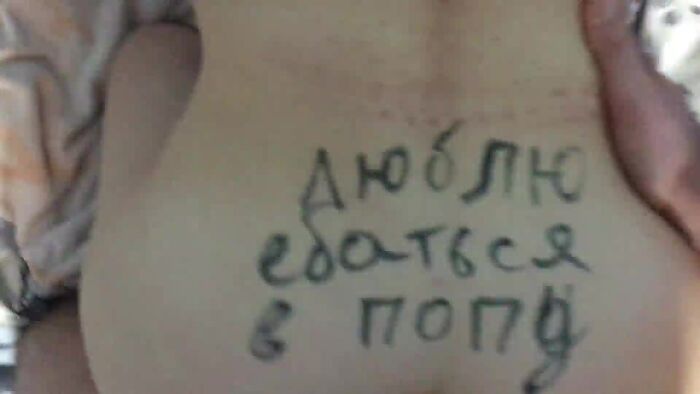 люблю
ебаться
в попу